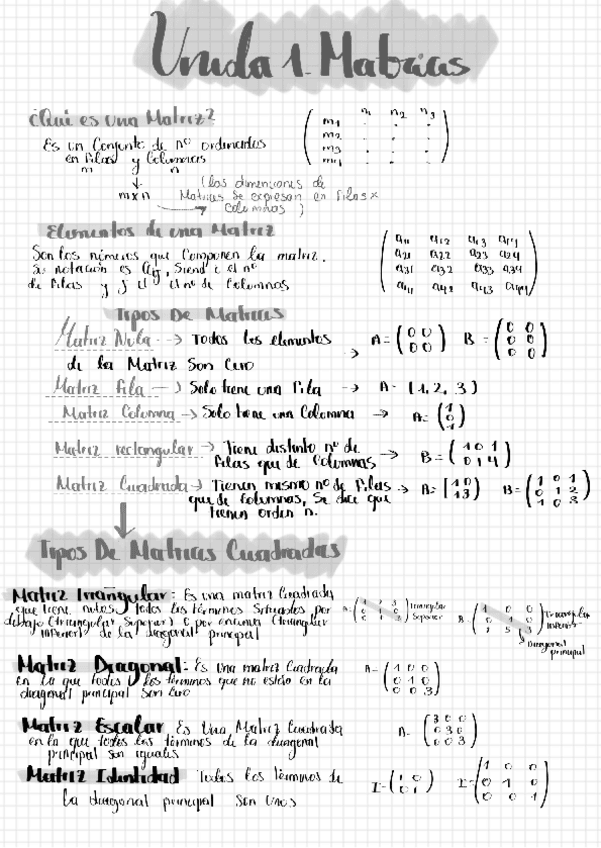 Unida 1. Matrices
¿Qué es una Matriz?
Es un Conjunto de nº ordenados
en Filas y Columnas
m n
m x n
(las dimensiones de
Matrices se expresan en Filas x
Columnas)
n₁ n₂ n₃
m₁ . . .
m₂ . . .
m₃ . . .
m₄ . . .
Elementos de una Matriz
Son los números que Componen la matriz.
su notación es aij, siendo i el nº
de Filas y j el nº de Columnas
a11 a12 a13 a14
a21 a22 a23 a24
a31 a32 a33 a34
a41 a42 a43 a44
Tipos De Matrices
Matriz Nula --> Todos los elementos
de la Matriz Son Cero
A = (0 0
0 0)
B = (0 0
0 0
0 0)
Matriz Fila -> Solo tiene una Fila -> A = (1, 2, 3)
Matriz Columna -> Solo tiene una Columna -> A = (1
0
1)
Matriz rectangular -> Tiene distinto nº de
Filas que de Columnas ->
B = (1 0 1
0 1 4)
Matriz Cuadrada -> Tienen mismo nº de Filas
que de Columnas, Se dice que
tienen orden n.
-> A = (1 0
1 3)
B = (1 0 1
0 1 2
1 0 3)
Tipos De Matrices Cuadradas
Matriz Triangular: Es una matriz Cuadrada
que tiene nulos todos los términos Situados por
debajo (triangular Superior) o por encima (triangular
inferior) de la diagonal principal
Triangular
Superior
B = (1 0 0
Triangular
inferior
Diagonal
principal
Matriz Diagonal: Es Una matriz Cuadrada
en la que todos los términos que no están en la
diagonal principal Son Cero
A = (1 0 0
0 1 0
0 0 3)
Matriz Escalar Es Una Matriz Cuadrada
en la que todos los términos de la diagonal
principal son iguales
A = (3 0 0
0 3 0
0 0 3)
Matriz Identidad Todos los Términos de
la diagonal principal Son Unos
I = (1 0
0 1)
I = (1 0 0
0 1 0
0 0 1)